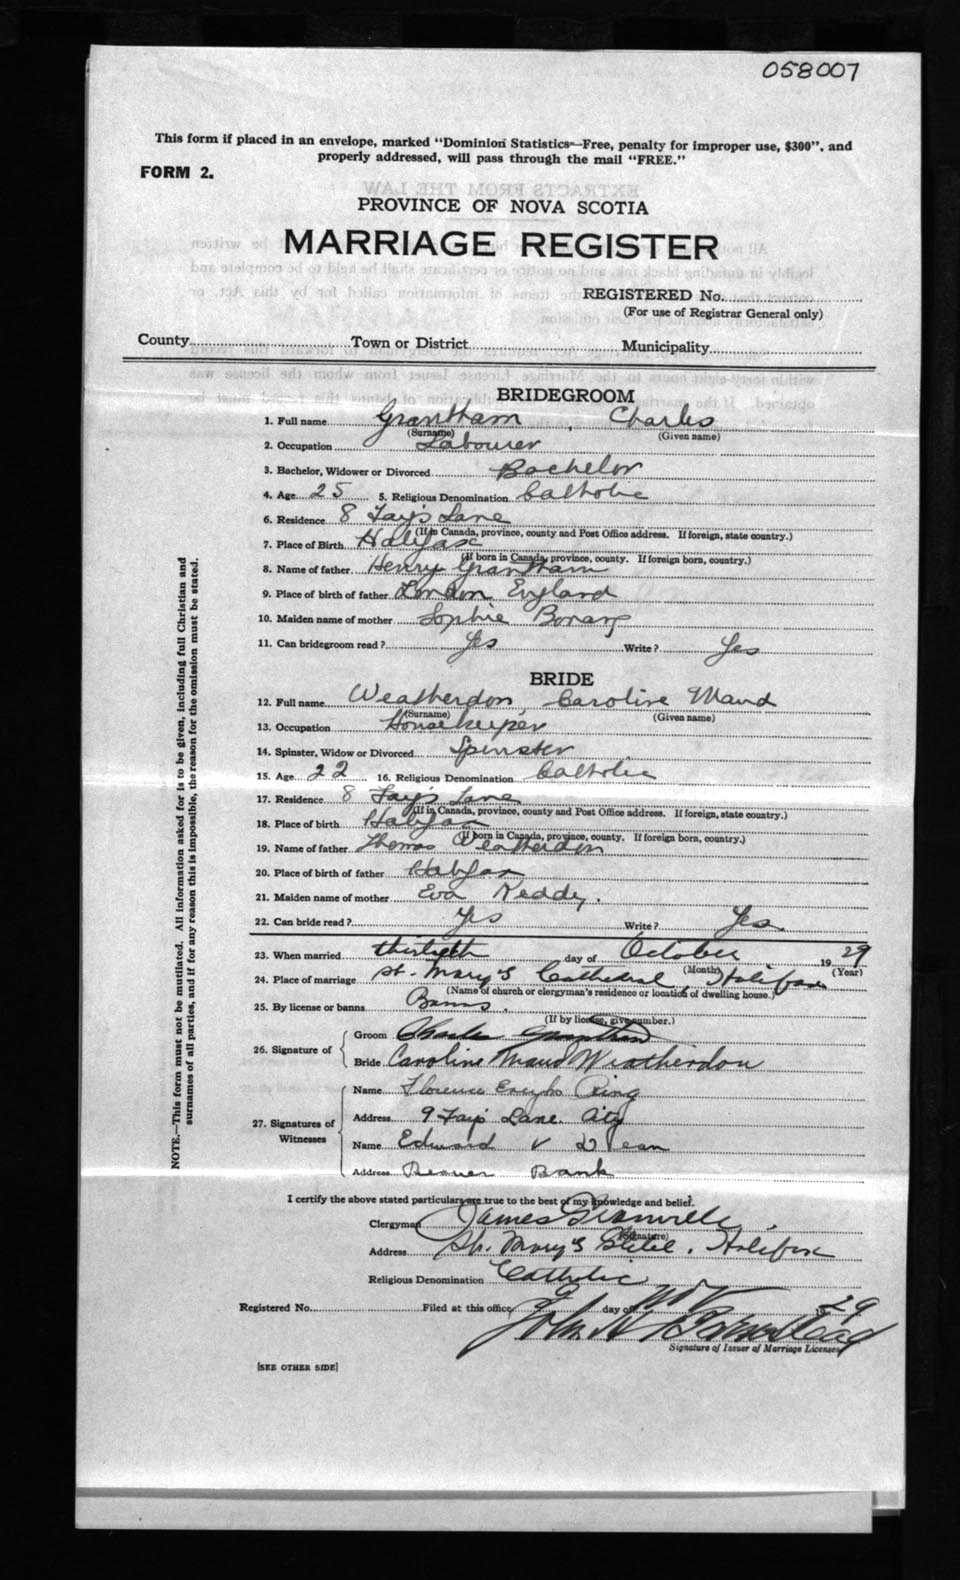 058007
This form if placed in an envelope, marked "Dominion Statistics—Free, penalty for improper use, $300", and
properly addressed, will pass through the mail "FREE."
FORM 2.
PROVINCE OF NOVA SCOTIA
MARRIAGE REGISTER
REGISTERED No.
(For use of Registrar General only)
County Town or District Municipality
BRIDEGROOM
1. Full name Grantham, Charles
(Surname) (Given name)
2. Occupation Labourer
3. Bachelor, Widower or Divorced Bachelor
4. Age 25 5. Religious Denomination Catholic
6. Residence 8 Fay's Lane
(If in Canada, province, county and Post Office address. If foreign, state country.)
7. Place of Birth Halifax
(If born in Canada, province, county. If foreign born, country.)
8. Name of father Henry Grantham
9. Place of birth of father London England
10. Maiden name of mother Sophie
11. Can bridegroom read? Yes Write? Yes
BRIDE
12. Full name Weatherdon, Caroline Maud
(Surname) (Given name)
13. Occupation Housekeeper
14. Spinster, Widow or Divorced Spinster
15. Age 22 16. Religious Denomination Catholic
17. Residence 8 Fay's Lane
(If in Canada, province, county and Post Office address. If foreign, state country.)
18. Place of birth Halifax
(If born in Canada, province, county. If foreign born, country.)
19. Name of father Thomas Weatherdon
20. Place of birth of father Halifax
21. Maiden name of mother Eva Reddy.
22. Can bride read? Yes Write? Yes.
23. When married thirtieth day of October 1929
(Month) (Year)
24. Place of marriage St. Mary's Cathedral, Halifax
(Name of church or clergyman's residence or location of dwelling house.)
25. By license or banns Banns.
(If by license, give number.)
26. Signature of
Groom Charles Grantham
Bride Caroline Maud Weatherdon
27. Signatures of Witnesses
Name Florence Ring
Address 9 Fay's Lane. City
Name Edward V
Address Beaver Bank
I certify the above stated particulars are true to the best of my knowledge and belief.
Clergyman James Granville.
(Signature)
Address St. Mary's Glebe. Halifax
Religious Denomination Catholic
Registered No. Filed at this office day of Nov 1929
John H Barnstead
Signature of Issuer of Marriage Licenses
[SEE OTHER SIDE]
NOTE.—This form must not be mutilated. All information asked for is to be given, including full Christian and
surnames of all parties, and if for any reason this is impossible, the reason for the omission must be stated.